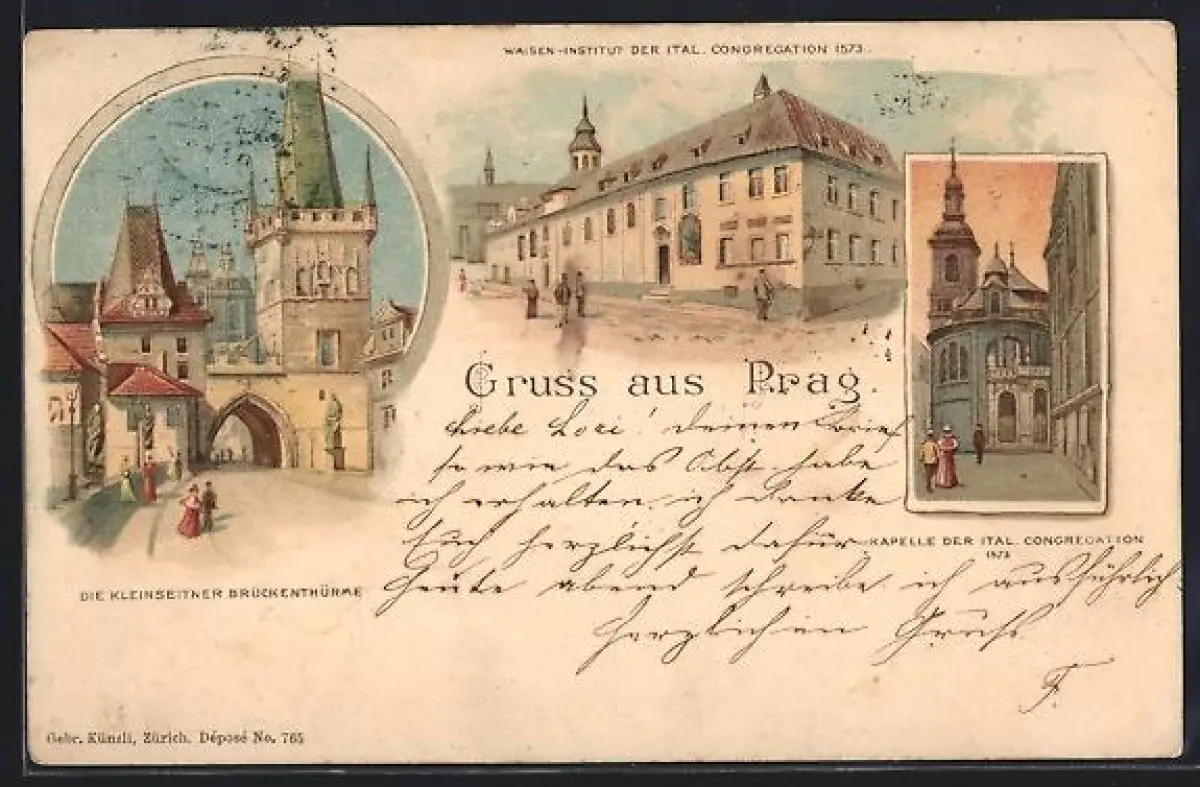 WAISEN-INSTITUT DER ITAL. CONGREGATION 1573.
Gruss aus Prag.
Liebe Lori! Deinen Brief
so wie das Obst habe
ich erhalten, ich danke
Euch herzlichst dafür
Heute abend schreibe ich ausführlich
Herzlichen Gruß
F.
KAPELLE DER ITAL. CONGREGATION
1573
DIE KLEINSEITNER BRÜCKENTHÜRME
Gebr. Künzli, Zürich. Déposé No. 765